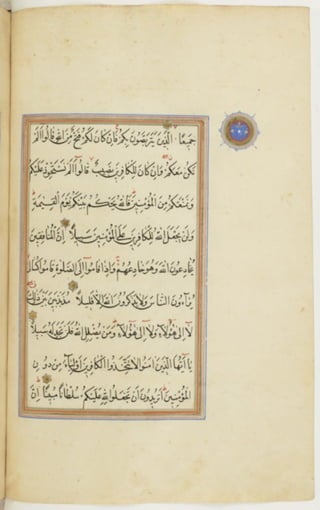 جَمِيعًا الَّذِينَ يَتَرَبَّصُونَ بِكُمْ فَإِن كَانَ لَكُمْ فَتْحٌ مِّنَ اللَّهِ قَالُوا أَلَمْ
نَكُن مَّعَكُمْ وَإِن كَانَ لِلْكَافِرِينَ نَصِيبٌ قَالُوا أَلَمْ نَسْتَحْوِذْ عَلَيْكُمْ
وَنَمْنَعْكُم مِّنَ الْمُؤْمِنِينَ فَاللَّهُ يَحْكُمُ بَيْنَكُمْ يَوْمَ الْقِيَامَةِ
وَلَن يَجْعَلَ اللَّهُ لِلْكَافِرِينَ عَلَى الْمُؤْمِنِينَ سَبِيلًا إِنَّ الْمُنَافِقِينَ
يُخَادِعُونَ اللَّهَ وَهُوَ خَادِعُهُمْ وَإِذَا قَامُوا إِلَى الصَّلَوةِ قَامُوا كُسَالَى
يُرَاءُونَ النَّاسَ وَلَا يَذْكُرُونَ اللَّهَ إِلَّا قَلِيلًا مُذَبْذَبِينَ بَيْنَ ذَلِكَ
لَا إِلَى هَؤُلَاءِ وَلَا إِلَى هَؤُلَاءِ وَمَن يُضْلِلِ اللَّهُ فَلَن تَجِدَ لَهُ سَبِيلًا
يَا أَيُّهَا الَّذِينَ آمَنُوا لَا تَتَّخِذُوا الْكَافِرِينَ أَوْلِيَاءَ مِن دُونِ
الْمُؤْمِنِينَ أَتُرِيدُونَ أَن تَجْعَلُوا لِلَّهِ عَلَيْكُمْ سُلْطَانًا مُّبِينًا إِنَّ